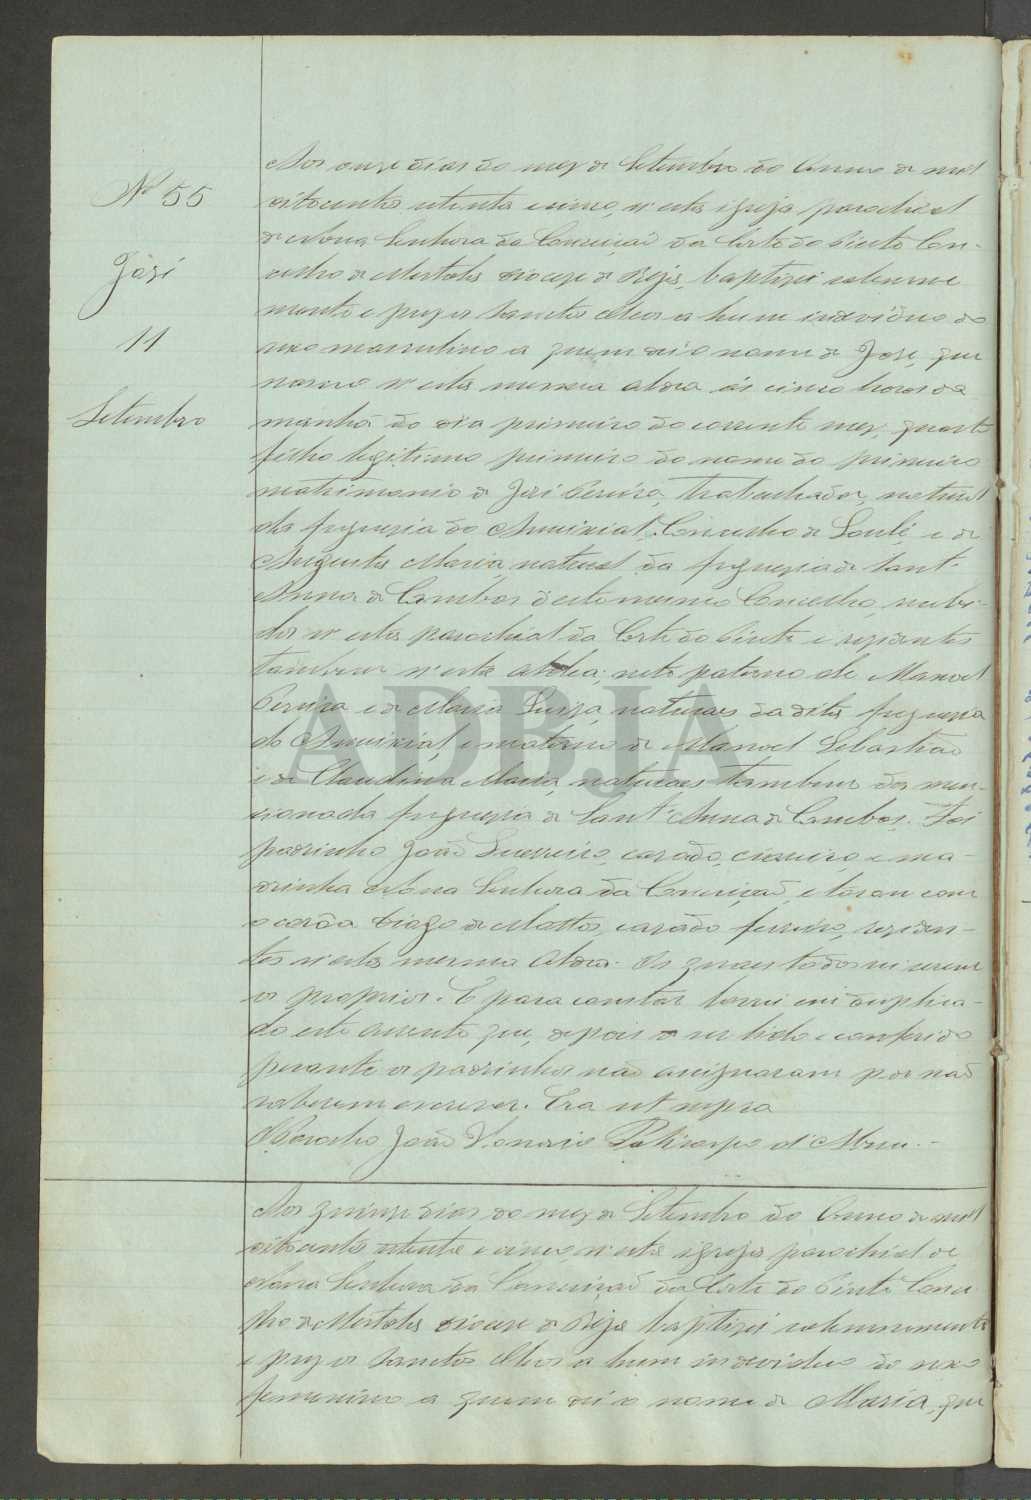 Nº 55
José
11
Setembro
Aos onze dias do mez de Setembro do Anno de mil
oitocentos oitenta e cinco, n'esta igreja parochial
de Nossa Senhora da Conceição da Corte do Pinto Con-
celho de Mertola diocese de Beja, baptizei solemne
mente e puz os Sanctos Oleos a hum individuo do
sexo masculino a quem dei o nome de José, que
nasceo n'esta mesma Aldea ás cinco horas da
manhã do dia primeiro do corrente mez, quarto
filho legitimo primeiro do nome do primeiro
matrimonio de José Pereira, trabalhador, natural
da freguesia do Ameixial, Concelho de Loulé, e de
Augusta Maria, natural da freguesia de Sant'
Anna de Cambas deste mesmo Concelho, recebi-
dos n'esta parochial da Corte do Pinto e residentes
tambem n'esta Aldea; neto paterno de Manoel
Pereira e de Maria Luiza, naturaes da dita freguesia
do Ameixial, e materno de Manoel Sebastião
e de Claudina Maria, naturaes tambem da men-
cionada freguesia de Sant'Anna de Cambas. Foi
padrinho João Guerreiro, casado, e ma-
drinha Nossa Senhora da Conceição, e tocou com
a corôa Tiago de Mattos, casado ferreiro, residen-
tes n'esta mesma Aldea. Os quaes todos sei serem
os proprios. E para constar lavrei em duplica-
do este Assento que, depois de ser lido e conferido
perante os padrinhos não assignaram por não
saberem escrever. Era ut supra
O Parocho João Policarpo d'
Aos quinze dias do mez de Setembro do Anno de mil
oitocentos oitenta e cinco, n'esta igreja parochial de
Nossa Senhora da Conceição da Corte do Pinto Conce
lho de Mertola diocese de Beja baptizei solemnemente
e puz os Sanctos Oleos a hum individuo do sexo
femenino a quem dei o nome de Maria, que
ADBJA